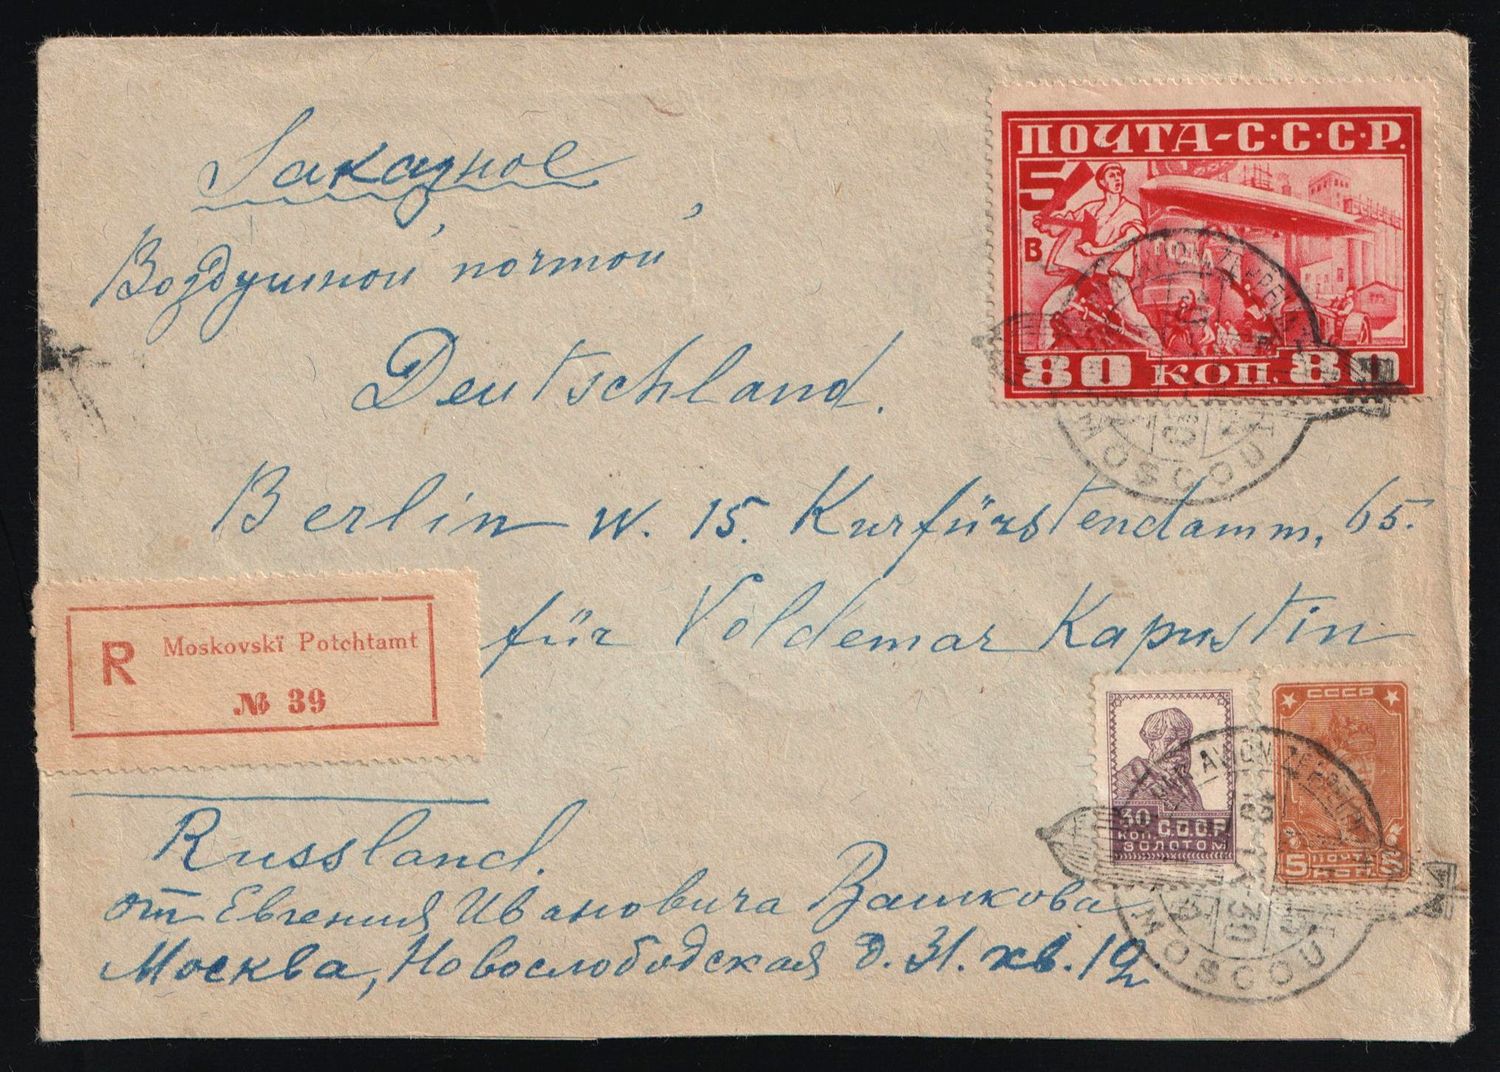 Заказное
Воздушной почтой
Deutschland.
Berlin W. 15. Kurfürstendamm, 65.
für Voldemar Kapustin
ПОЧТА-С·С·С·Р.
5
В
80 КОП. 80
PAR AVION ZEPPELIN
30
MOSCOU
R Moskovskï Potchtamt
№ 39
30 КОП. С.С.С.Р.
ЗОЛОТОМ
СССР
5 ПОЧТА 5
КОП.
PAR AVION ZEPPELIN
30
MOSCOU
Russland.
от Евгения Ивановича Вашкова
Москва, Новослободская д. 31. кв. 12